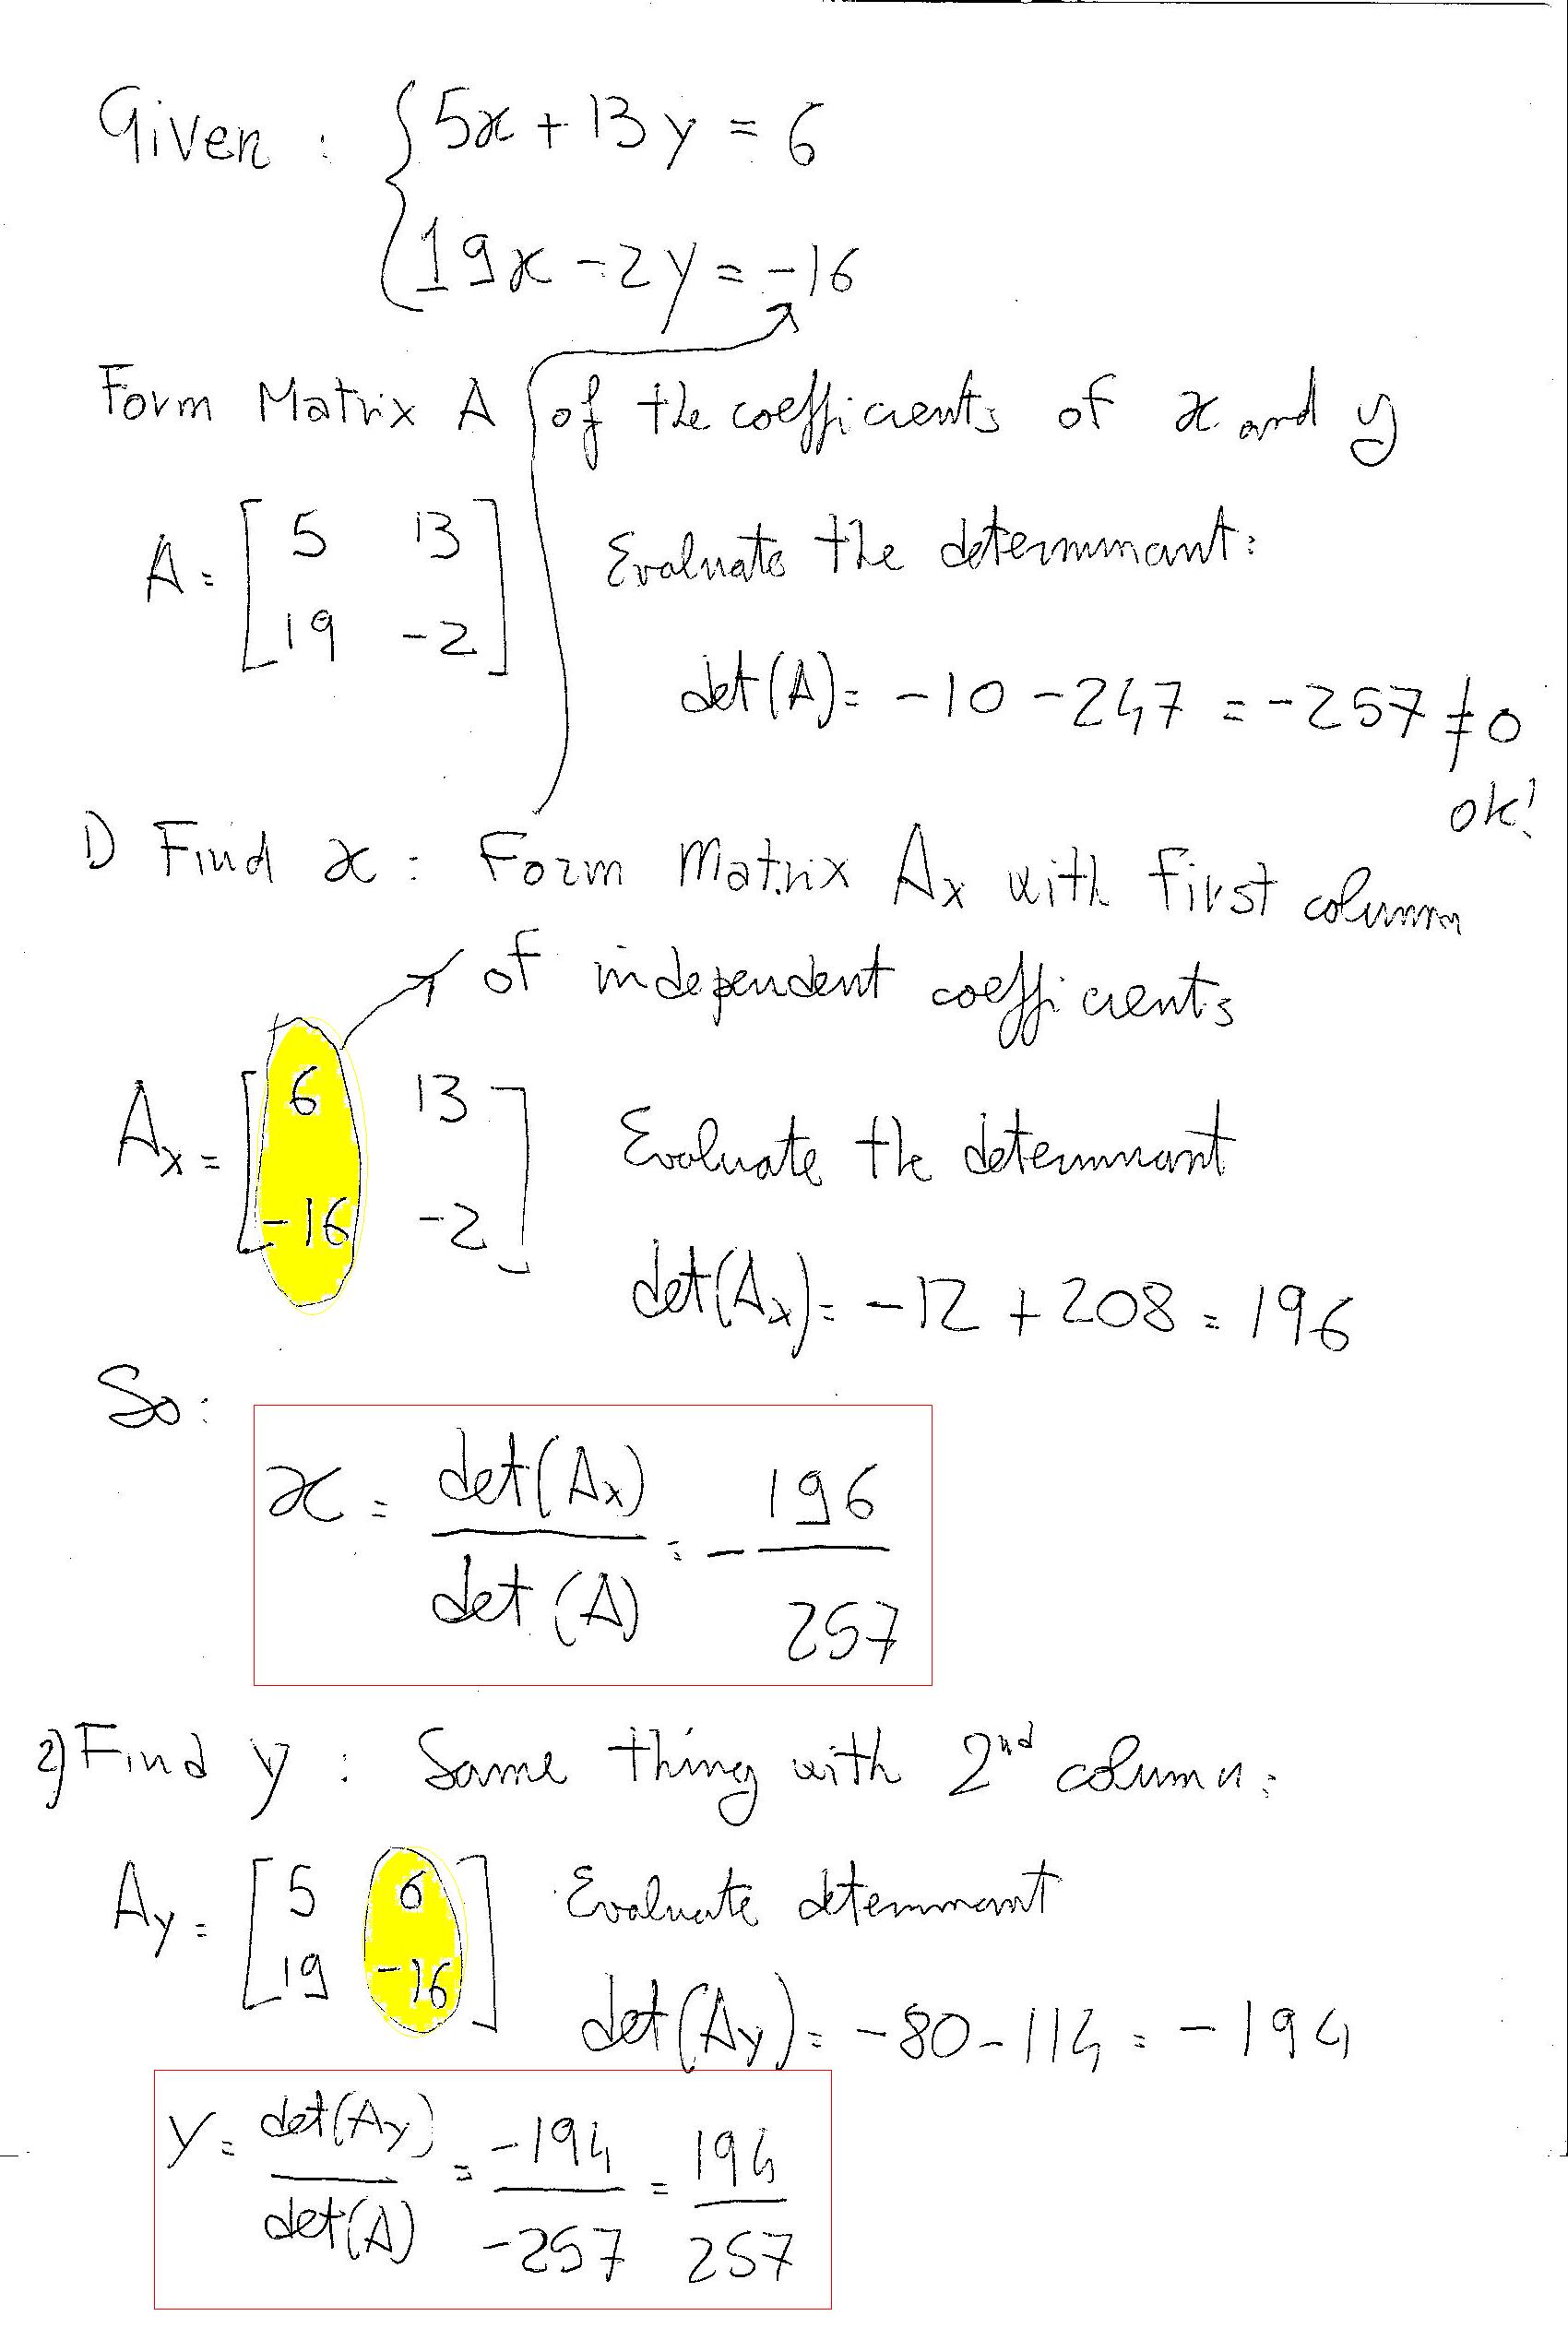 Given : { 5x + 13y = 6
19x - 2y = -16
Form Matrix A of the coefficients of x and y
A = [ 5 13
19 -2 ]
Evaluate the determinant:
det(A) = -10 - 247 = -257 ≠ 0
ok!
1) Find x : Form Matrix Ax with first column
of independent coefficients
Ax = [ 6 13
-16 -2 ]
Evaluate the determinant
det(Ax) = -12 + 208 = 196
So:
x = det(Ax) / det(A) = - 196 / 257
2) Find y : Same thing with 2nd column:
Ay = [ 5 6
19 -16 ]
Evaluate determinant
det(Ay) = -80 - 114 = -194
y = det(Ay) / det(A) = -194 / -257 = 194 / 257